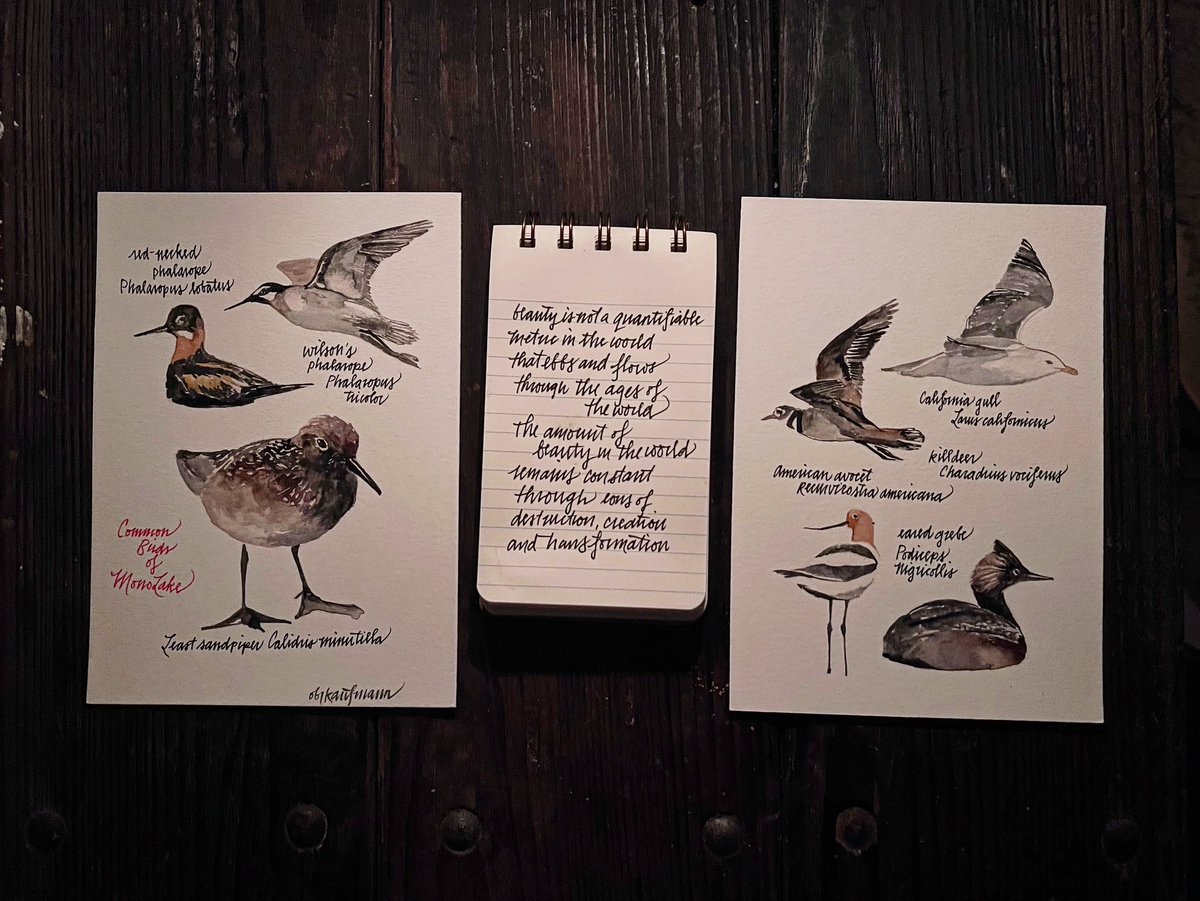 red-necked
phalarope
Phalaropus lobatus
wilson's
phalarope
Phalaropus
tricolor
Common
Birds
of
Mono Lake
Least sandpiper Calidris minutilla
obikaufmann
beauty is not a quantifiable
metric in the world
that ebbs and flows
through the ages of
the world
the amount of
beauty in the world
remains constant
through eons of
destruction, creation
and transformation
California gull
Larus californicus
killdeer
Charadrius vociferus
American avocet
Recurvirostra americana
eared grebe
Podiceps
Nigricollis